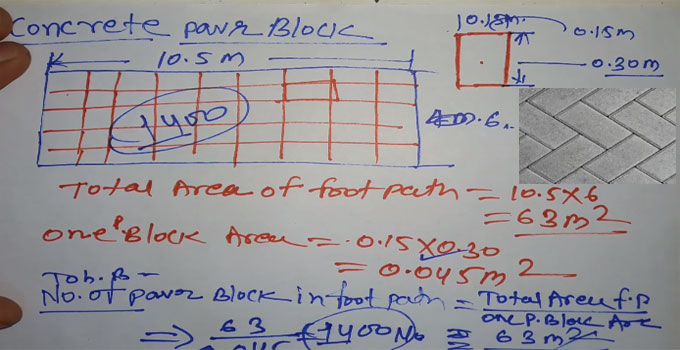 Concrete paver Block
10.5 m
0.15m.
0.15m
0.30m
1400
6
Total Area of foot path = 10.5x6
= 63m2
one P.Block Area = 0.15x0.30
= 0.045m2
No. of paver Block in foot path = Total Area f.p
one P. Block Are
=> 63
1400 No
63m2